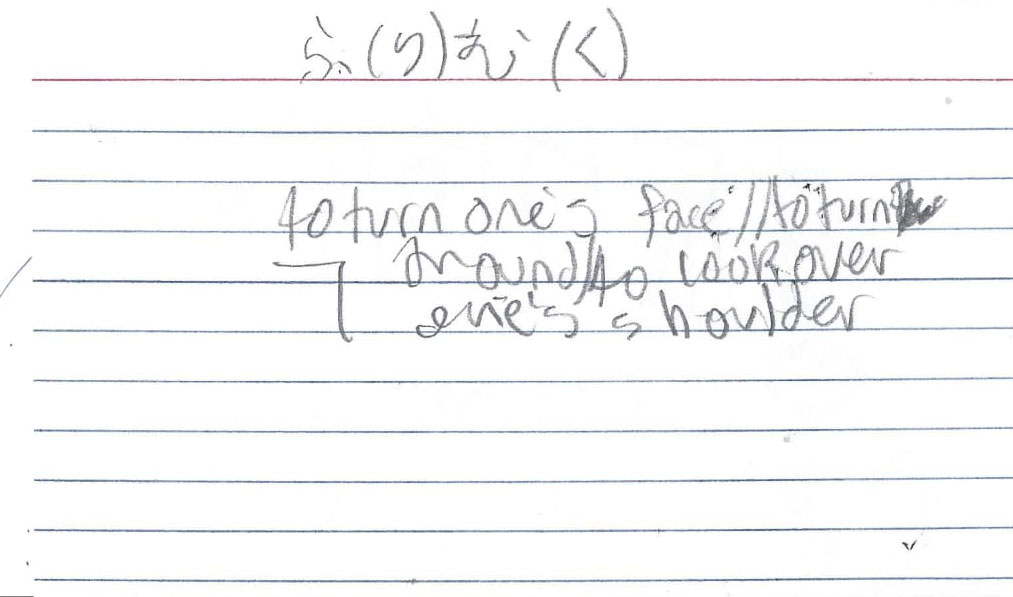 ふ(り)む(く)
to turn one's face//to turn
around/to look over
one's shoulder